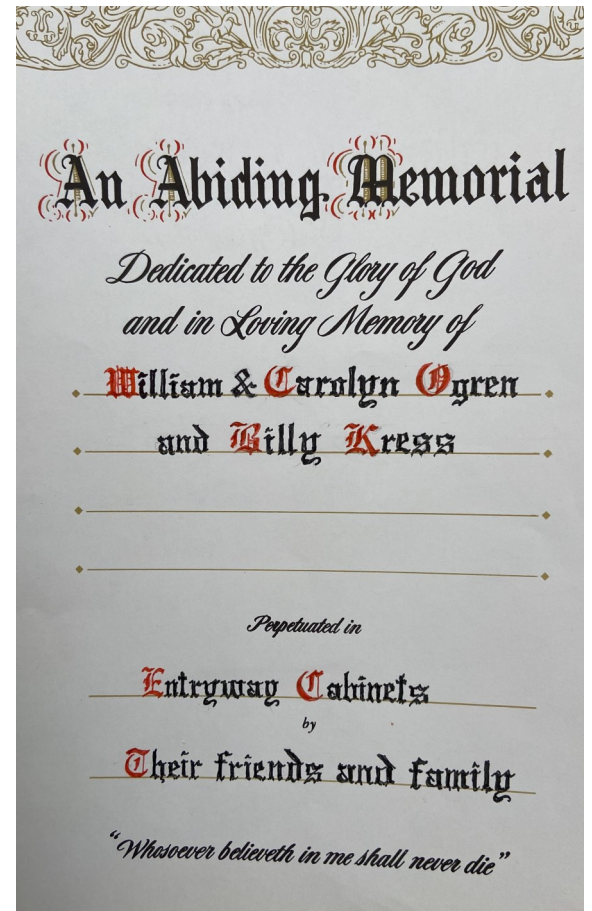 An Abiding Memorial
Dedicated to the Glory of God
and in Loving Memory of
William & Carolyn Ogren
and Billy Kress
Perpetuated in
Entryway Cabinets
by
Their friends and family
"Whosoever believeth in me shall never die"